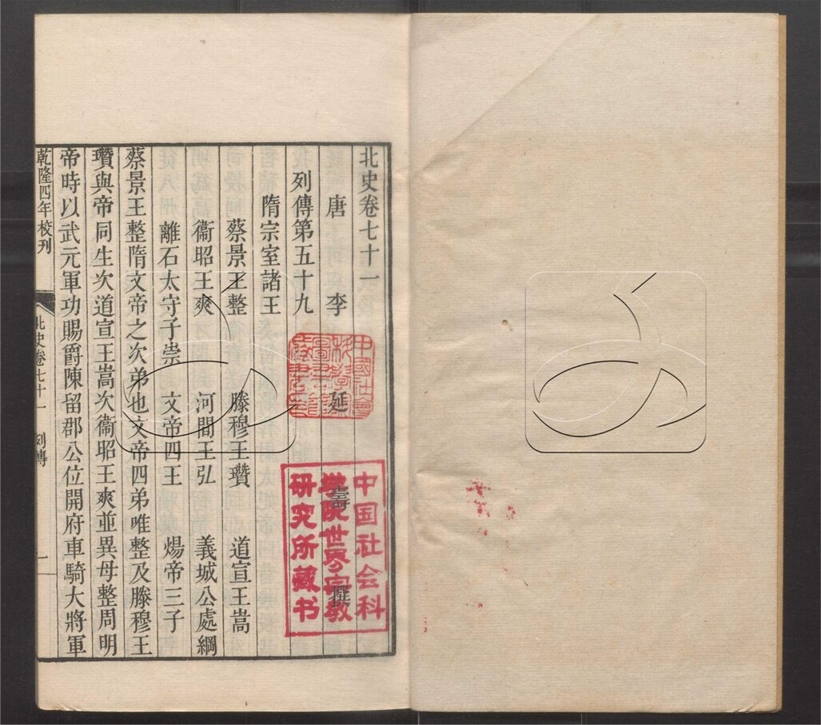 北史卷七十一
唐 李 延 壽 撰
列傳第五十九
隋宗室諸王
蔡景王整 滕穆王瓚 道宣王嵩
衞昭王爽 河間王弘 義城公處綱
離石太守子崇 文帝四王 煬帝三子
蔡景王整隋文帝之次弟也文帝四弟唯整及滕穆王
瓚與帝同生次道宣王嵩次衞昭王爽並異母整周明
帝時以武元軍功賜爵陳留郡公位開府車騎大將軍
乾隆四年校刊
北史卷七十一 列傳
一
中国社会科
學院世界宗教
研究所藏书